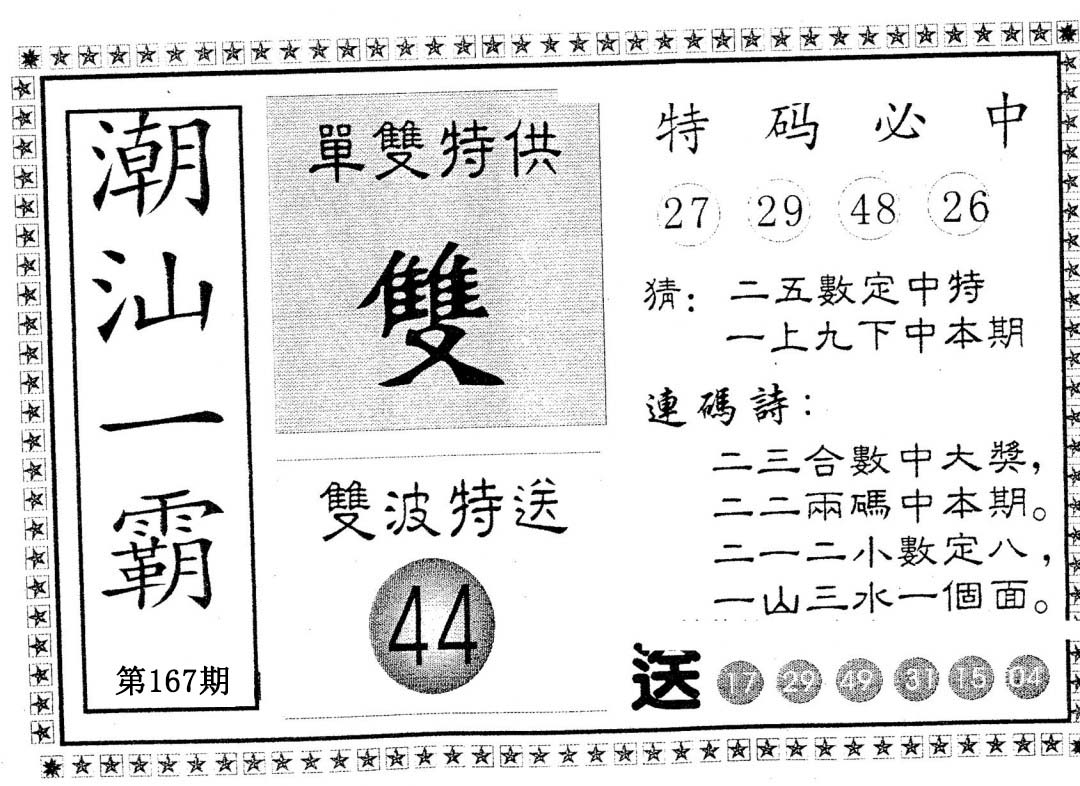 潮汕一霸
第167期
單雙特供
雙
雙波特送
44
特码必中
27 29 48 26
猜：二五數定中特
一上九下中本期
連碼詩：
二三合數中大獎，
二二兩碼中本期。
二一二小數定八，
一山三水一個面。
送 17 29 49 31 15 04